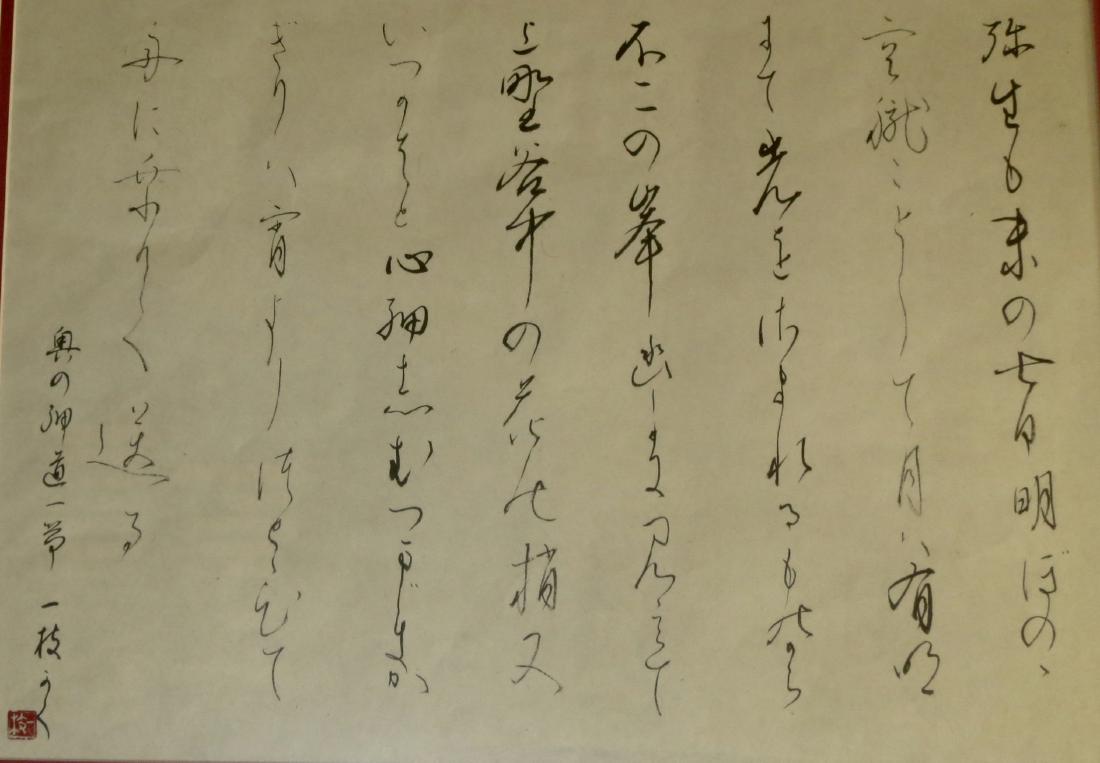 弥生も末の七日明ぼのゝ
空朧ことして月ハ有明
まて光をさまれるものから
不二の峯幽かに見えて
上野谷中の花の梢又
いつかはと心細志むつましか
ぎりハ宵よりつとひて
舟に乗りて送る
奥の細道一節 一枝かく
一枝